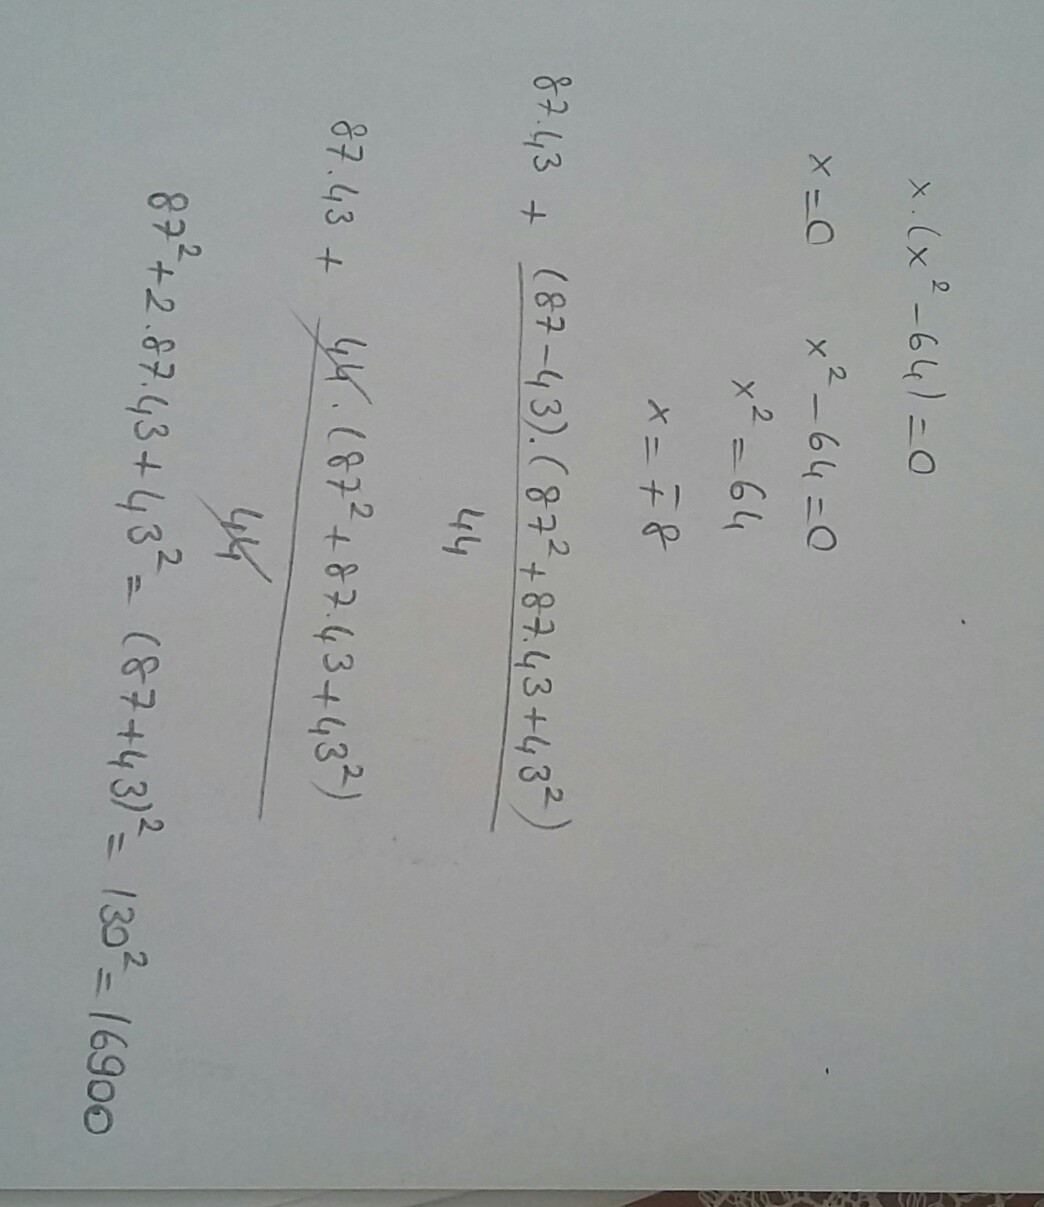 x.(x²-64)=0
x=0 x²-64=0
x²=64
x=∓8
87.43 + (87-43).(87²+87.43+43²)
44
87.43 + 44.(87²+87.43+43²)
44
87²+2.87.43+43² = (87+43)² = 130² = 16900